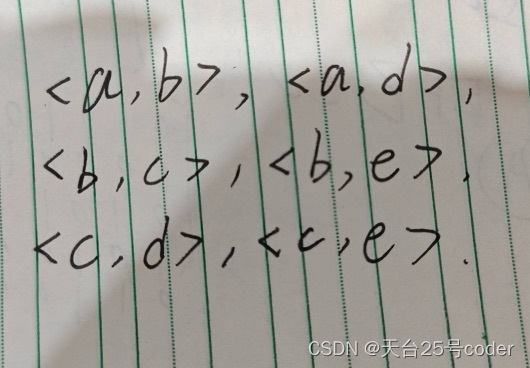 <a, b>, <a, d>,
<b, c>, <b, e>,
<c, d>, <c, e>.
CSDN @天台25号coder